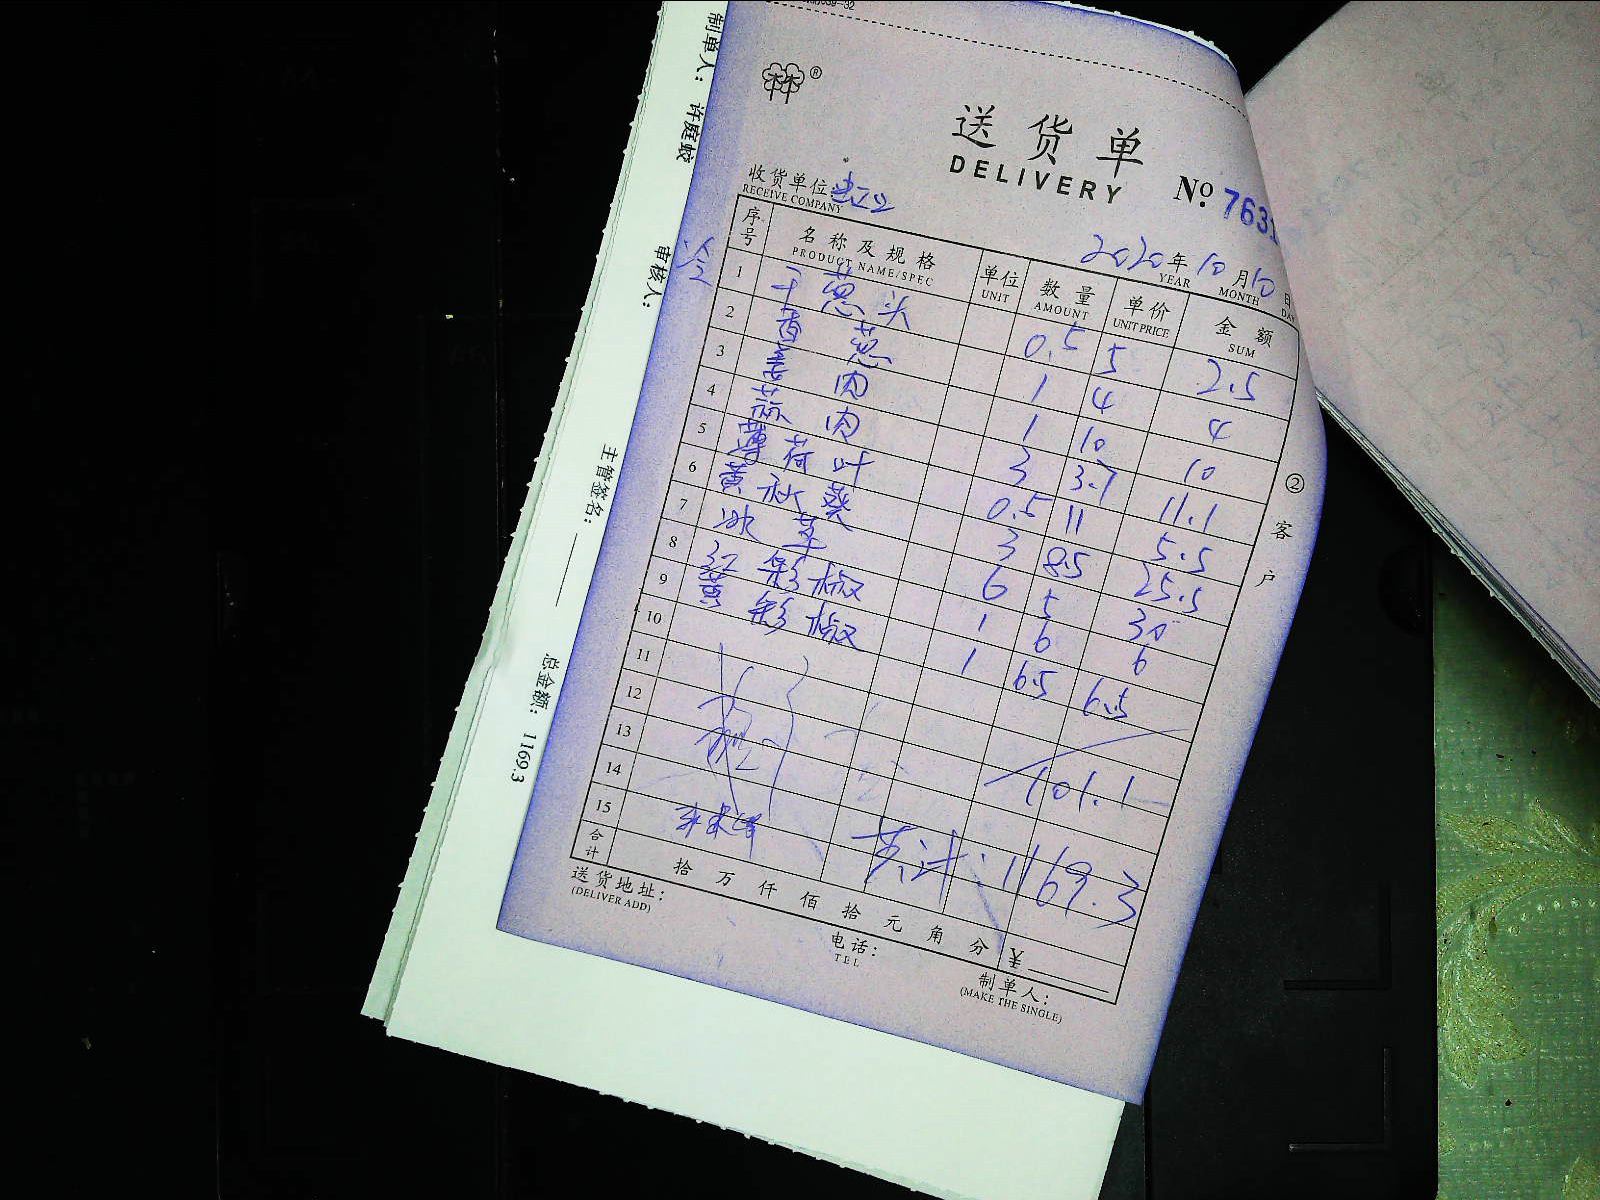 制单人: 许庭蛟
审核人:
主管签名:
总金额: 1169.3
®
送货单
DELIVERY
№ 7631
收货单位:
RECEIVE COMPANY
2020年10月10日
YEAR MONTH DAY
序号 名称及规格 单位 数量 单价 金额
PRODUCT NAME/SPEC UNIT AMOUNT UNIT PRICE SUM
1 干葱头 0.5 5 2.5
2 香葱 1 4 4
3 姜肉 1 10 10
4 蒜肉 3 3.7 11.1
5 薄荷叶 0.5 11 5.5
6 黄秋葵 3 8.5 25.5
7 冰草 6 5 30
8 红彩椒 1 6 6
9 黄彩椒 1 6.5 6.5
10
11
12 101.1
13
14
15 共计:1169.3
合计 拾万仟佰拾元角分 ¥
送货地址:
(DELIVER ADD)
电话:
TEL
制单人:
(MAKE THE SINGLE)
②客户